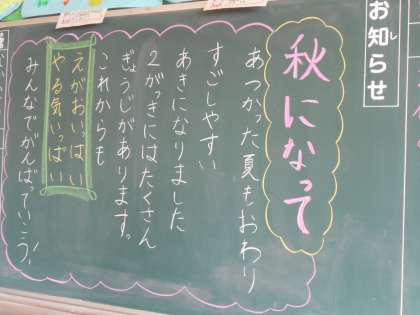 お知らせ
秋になって
あつかった夏もおわり
すごしやすい
あきになりました
2がっきにはたくさん
ぎょうじがあります。
これからも
えがおいっぱい
やる気いっぱい
みんなでがんばっていこう!